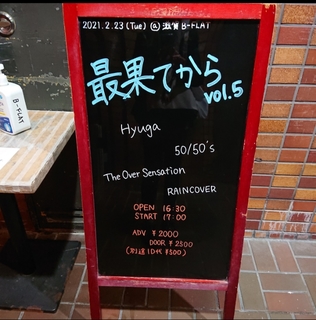 2021.2.23 (Tue) @ 滋賀 B-FLAT
最果てから
vol.5
Hyuga
50/50's
The Over Sensation
RAINCOVER
OPEN 16:30
START 17:00
ADV ¥2000
DOOR ¥2500
(別途1D代 ¥500)
B-FLAT